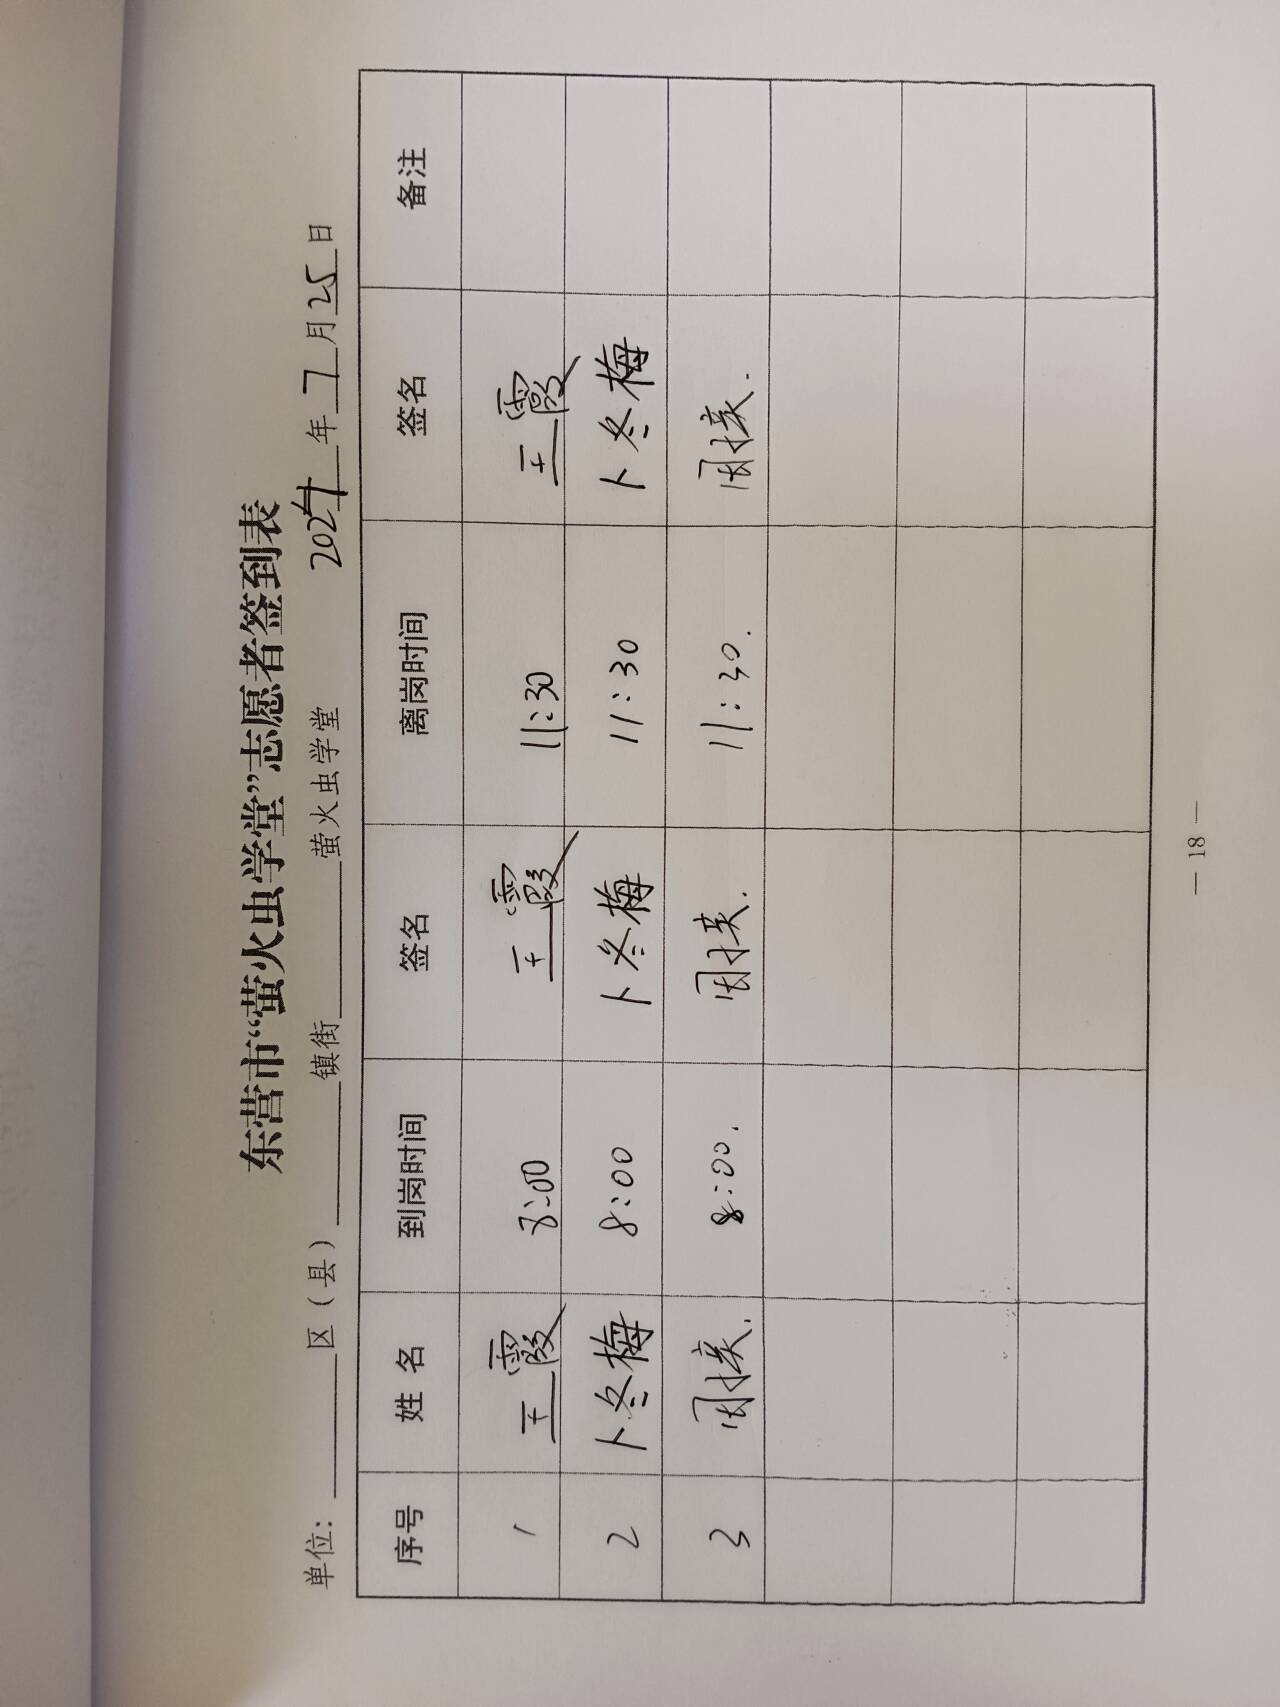 东营市“萤火虫学堂”志愿者签到表
单位：______区（县）______镇街______萤火虫学堂 2024年7月25日
序号 姓名 到岗时间 签名 离岗时间 签名 备注
1 王霞 8:00 王霞 11:30 王霞
2 卜冬梅 8:00 卜冬梅 11:30 卜冬梅
3 8:00. 11:30.
— 18 —